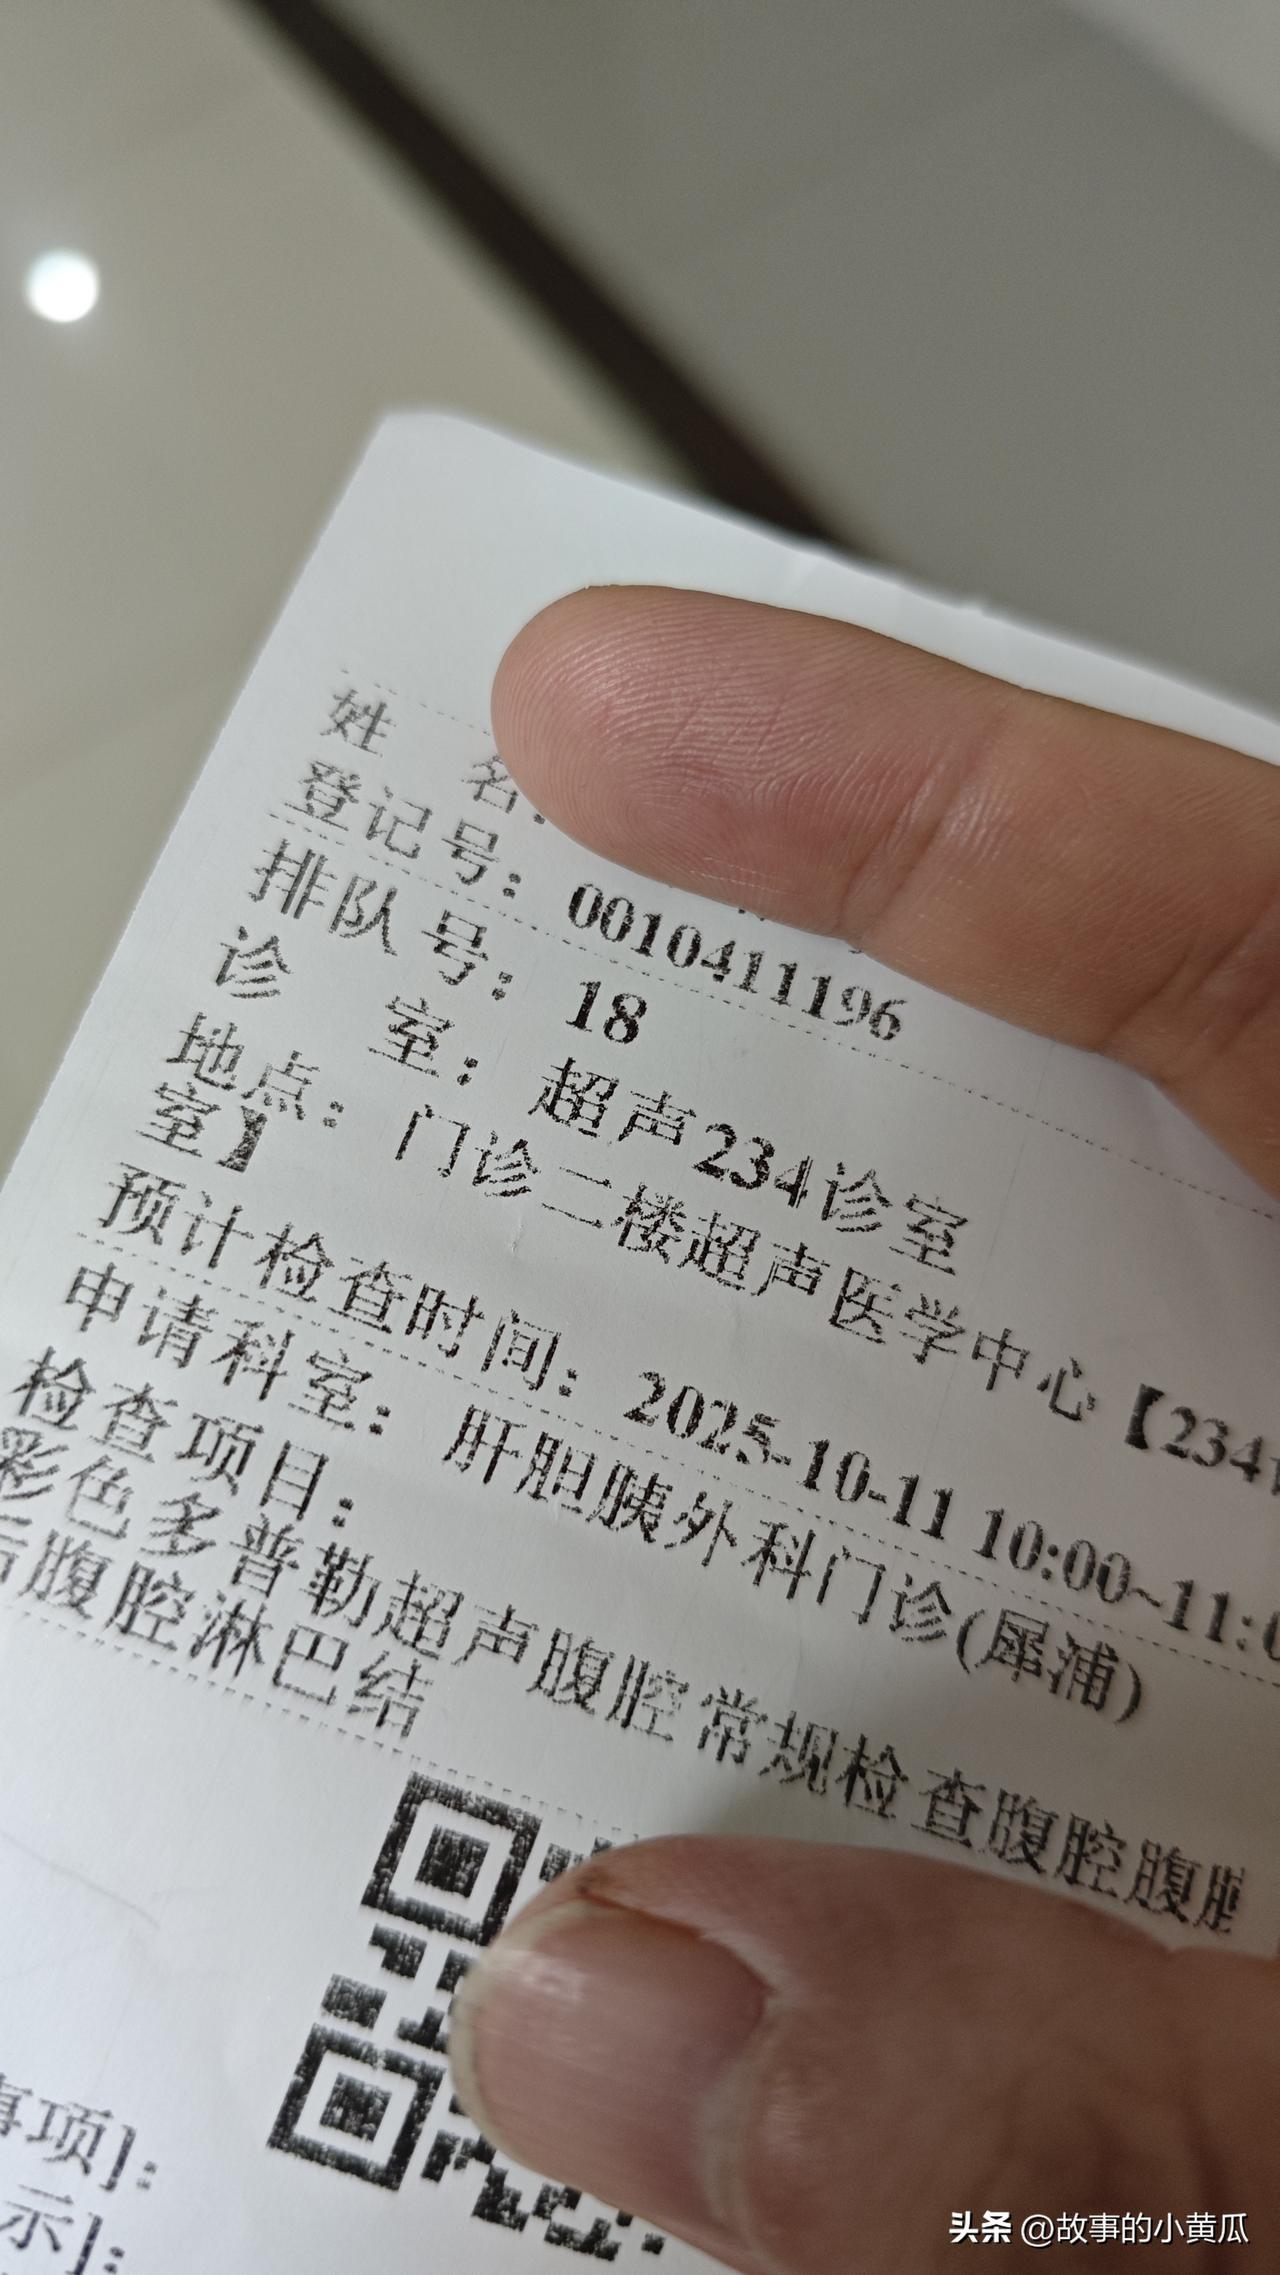 姓 名:
登记号: 0010411196
排队号: 18
诊 室: 超声234诊室
地点: 门诊二楼超声医学中心【234
室】
预计检查时间: 2025-10-11 10:00~11:
申请科室: 肝胆胰外科门诊(犀浦)
检查项目:
彩色多普勒超声腹腔常规检查腹腔腹
后腹腔淋巴结
事项]:
示]:
头条 @故事的小黄瓜